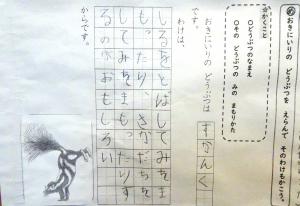 め おきにいりの どうぶつを えらんで そのわけもかこう。
☆かくこと
○どうぶつのなまえ
○その どうぶつの みの まもりかた
おきにいりの どうぶつは すかんく
です。
わけは、
しるをとばしてみをま
もったり、さかだちを
してみをまもったりす
るのがおもしろい
からです。